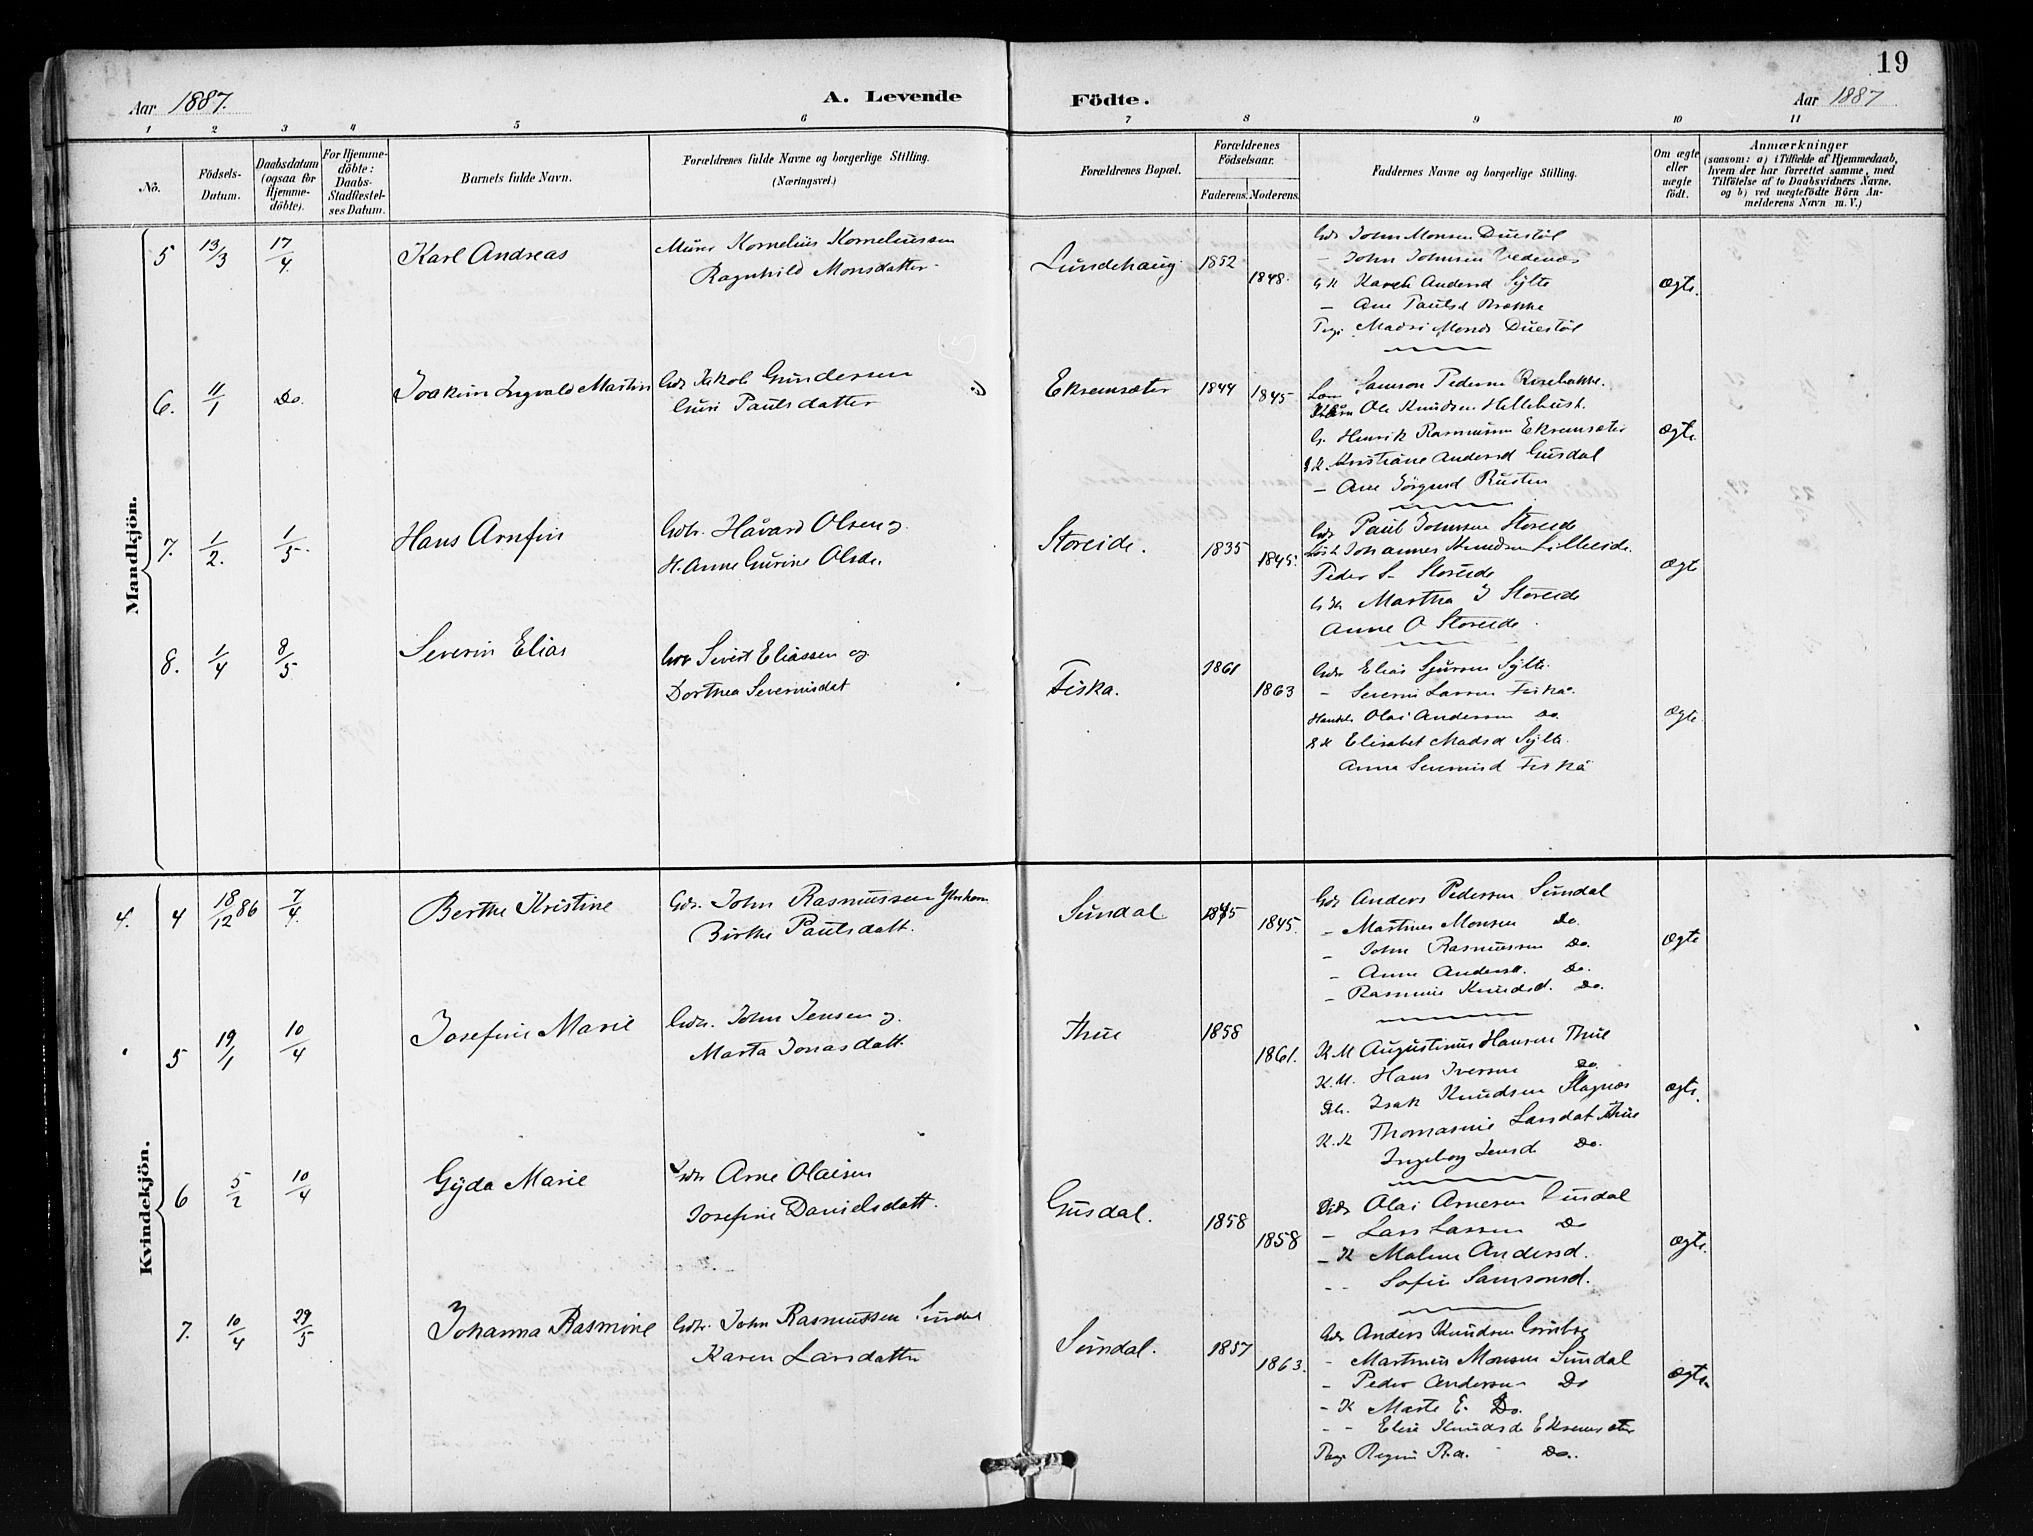 19
Aar 1887. A. Levende Födte. Aar 1887
1 2 3 4 5 6 7 8 9 10 11
No. Födsels-Datum. Daabsdatum (ogsaa for Hjemme-döbte). For Hjemme-döbte: Daabs-Stadfæstel-ses Datum. Barnets fulde Navn. Forældrenes fulde Navne og borgerlige Stilling. (Næringsvei.) Forældrenes Bopæl. Forældrenes Födselsaar. Faderens. Moderens. Faddernes Navne og borgerlige Stilling. Om ægte eller uægte födt. Anmærkninger (saasom: a) i Tilfælde af Hjemmedaab, hvem der har forrettet samme, med Tilföielse af to Daabsvidners Navne, og b) ved uegtefödte Börn Anmelderens Navn m. V.)
Mandkjön.
5 13/3 17/4 Karl Andreas Murer Kornelius Korneliussen Lundehaug 1852 Gdr John Monsen Duestøl
Ragnhild Monsdatter 1848. – John Johnsen Vedenæs
Anders Sylte ægte.
– Ane Paulsd Brække
Monsd Duestøl
6. 11/1 Do. Joakim Ingvald Martin Gdr Jakob Gundersen Eksemsæter 1844 1845 Samson Pedersen
Guri Paulsdatter Ole Knudsen Hellebust.
G. Henrik Rasmussen Eksemsæter ægte
G.K. Kristiane Andersd Gusdal
– Ane Rusten
7. 1/2. 1/5. Hans Arnfin Gdbr. Håvard Olsen og Storeide. 1835 Gdr Paul Johnsen Storeide
H. Anne Gurine Olsdr. 1845. Johannes Knudsen Lilleeide.
Peder S– Storeide ægte
Martha J Storeide
Anne O Storeide.
8. 1/4 8/5 Severin Elias Gbr Sivert Eliassen og Fiska. 1861 Gdr Elias Sjursen Sylte.
Dorthea Severinsdat 1863 – Severin Larsen Fiskå.
Olai Andersen Do. Ægte
G K Elisabet Madsd Sylte.
Anna Severinsd Fiskå
Kvindekjön.
4. 4 18/12 86 7/4. Berthe Kristine Gdr. John Rasmussen Sundal 1845 Gdr Anders Pedersen Sundal
Birthe Paulsdatt. 1845. – Martinus Monsen Do.
– John Rasmussen Do. Ægte
– Anne Andersd. Do.
– Rasmine Knudsd. Do.
5 19/1 10/4 Josefine Marie Gdr. John Jensen og Thue 1858
Marta Jonasdatt. 1861. K M Augustinus Hansen Thue
K.M. Hans Iversen Do.
Isak Knudsen Hagnæs ægte.
K.K Thomasine Larsdat Thue
Ingeborg Jensd Do.
6 5/2 10/4 Gyda Marie Gdr Arne Olaisen Gusdal. 1858 Gdr Olai Arnesen Gusdal
Josefine Danielsdatt. 1858 – Lars Larsen Do
– K Malene Andersd. ægte.
– – Sofie Samsonsd.
7. 10/4 29/5 Johanna Rasmine Gdbr. John Rasmussen Sundal Sundal. 1857 Gdr Anders Knudsen
Karen Larsdatter 1863. – Martinus Monsen Sundal
– Peder Andersen Do ægte
– K Marte E. Do.
– – Elise Knudsd Eksemsæter
Do.